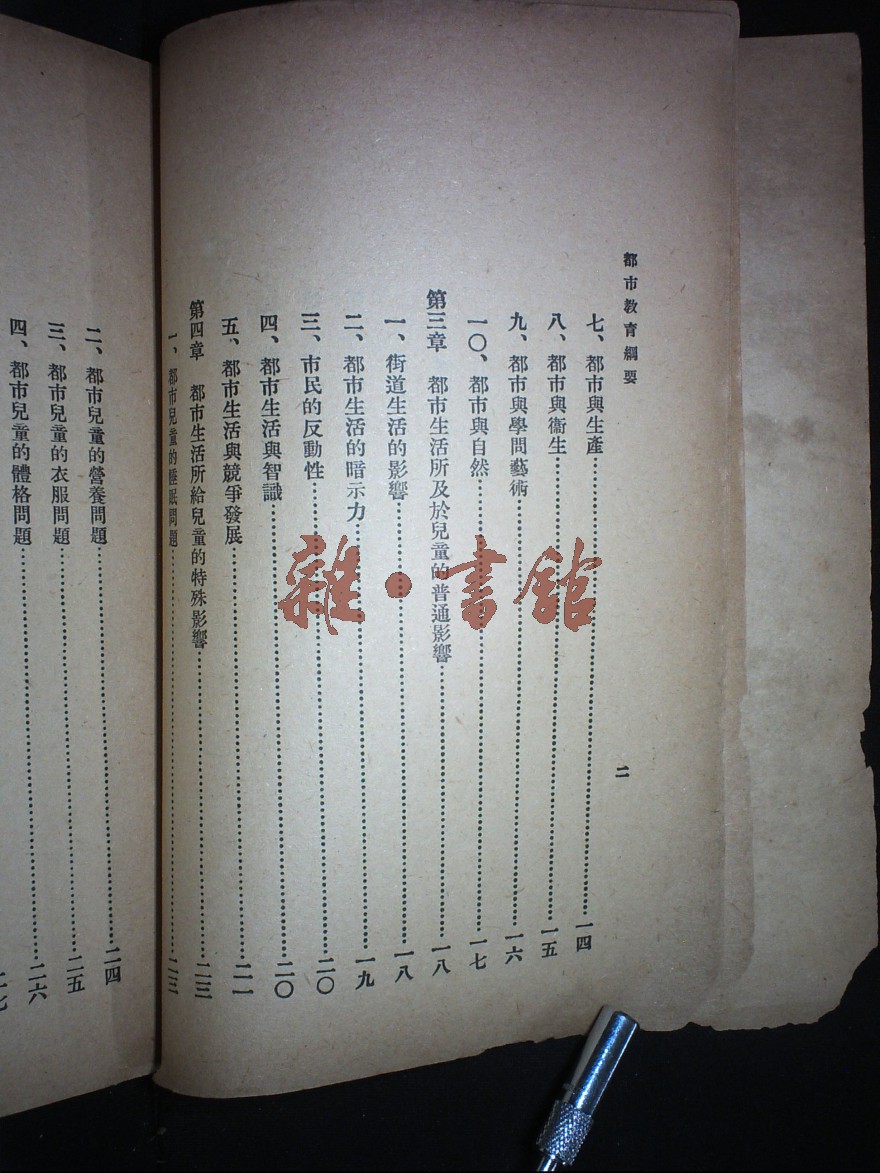 都市教育綱要
二
七、都市與生產……一四
八、都市與衞生……一五
九、都市與學問藝術……一六
一〇、都市與自然……一七
第三章 都市生活所及於兒童的普通影響……一八
一、街道生活的影響……一八
二、都市生活的暗示力……一九
三、市民的反動性……二〇
四、都市生活與智識……二〇
五、都市生活與競爭發展……二一
第四章 都市生活所給兒童的特殊影響……二三
一、都市兒童的睡眠問題……二三
二、都市兒童的營養問題……二四
三、都市兒童的衣服問題……二五
四、都市兒童的體格問題……二六
二七
雜·書館